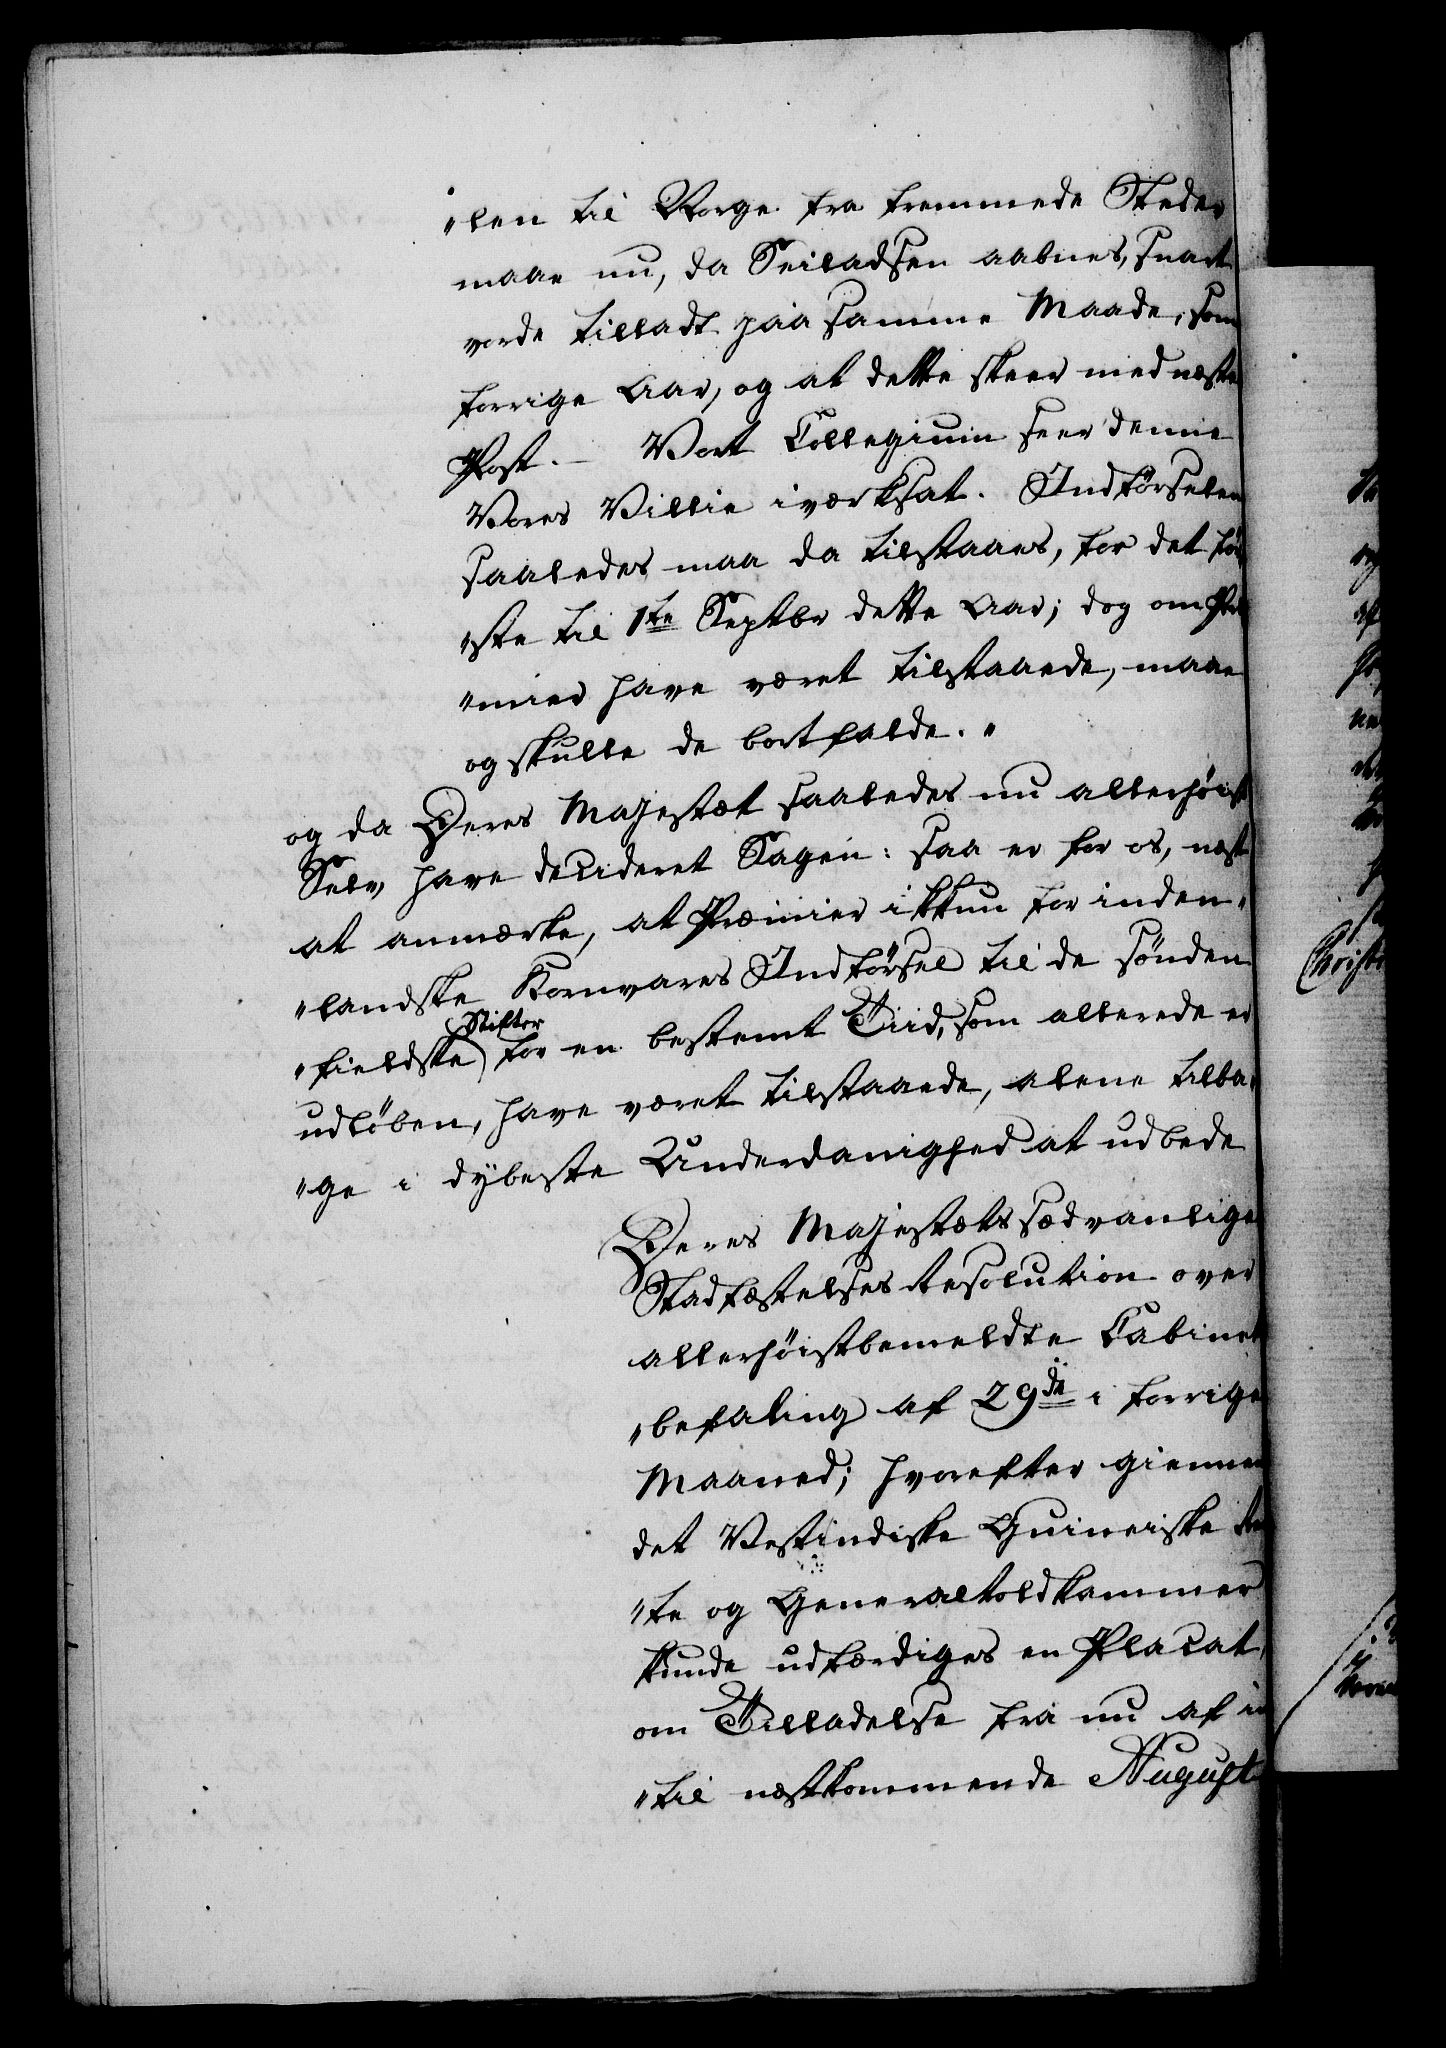 "len til Norge fra fremmede Steder
maae nu, da Seiladsen aabnes, snart
vorde tilladt paa samme Maade, som
forrige Aar, og at dette skeer med næste
Post. — Vort Collegium seer denne
Vores Villie iværksat. Indførselen
saaledes maa da tilstaaes, for det før
"ste til 1te Septbr dette Aar; dog om Præ
"mier have været tilstaaede, maae
og skulle de bortfalde."
og da Deres Majestæt saaledes nu allerhöist
Selv have decideret Sagen: saa er for os, næst
at anmærke, at Præmier ikkun for inden"
"landske Kornvares Indförsel til de sönden
"fieldske Stifter for en bestemt Tiid, som allerede er
udlöben, have været tilstaaede, alene tilba"
"ge i dÿbeste Underdanighed at udbede
Deres Majestæts sædvanlige
Stadfæstelses Resolution over
allerhöistbemeldte Cabinets
"befaling af 29de i forrige
Maaned; hvorefter giennem
det Vestindiske Guineiske Ren
"te og Generaltoldkammer
kunde udfærdiges en Placat,
om Tilladelse fra nu af in
"til næstkommende August
Christi